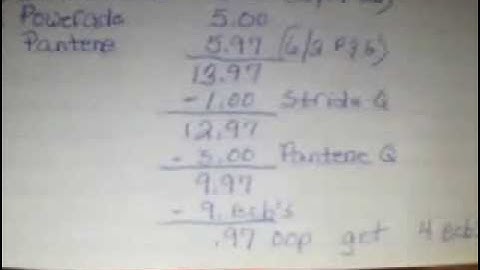 Powerade 5.00
Pantene 5.97
13.97
-1.00 Stride Q
12.97
- 3.00 Pantene Q
9.97
- 9. Ecb's
.97 oop get 4 Ecb